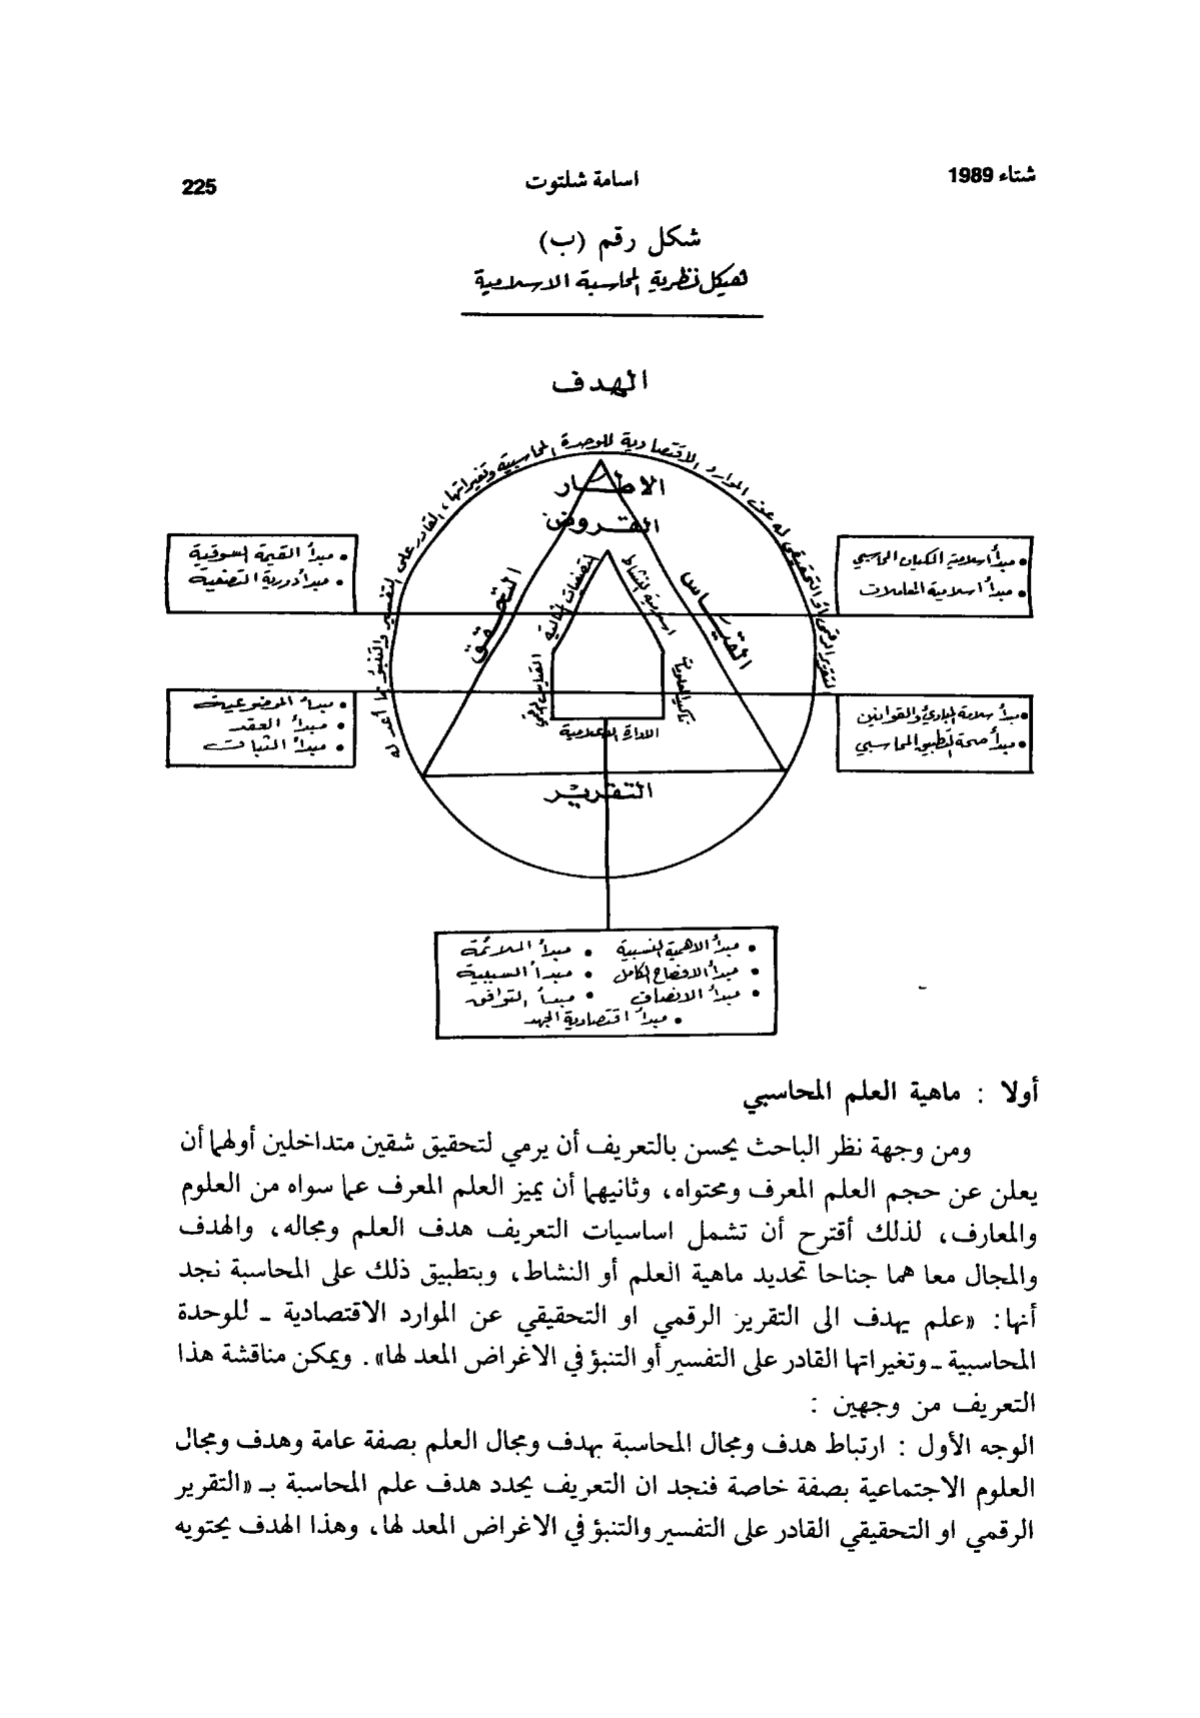 شتاء 1989
اسامة شلتوت
225
شكل رقم (ب)
هيكل نظرية المحاسبة الاسلامية
الهدف
التقرير الرقمي او التحقيقي له عن الموارد الاقتصادية للوحدة المحاسبية وتغيراتها، القادر على التفسير والتنبؤ
الاطار
الفروض
القياس
التحقق
التقرير
اسلامية النشاط
الادارة الاعلامية
• مبدأ اسلامية الكيان المحاسبي
• مبدأ اسلامية المعاملات
• مبدأ القيمة السوقية
• مبدأ دورية التصفية
• مبدأ سلامة المبادئ والقوانين
• مبدأ صحة التطبيق المحاسبي
• مبدأ الموضوعية
• مبدأ العقد
• مبدأ الثبات
• مبدأ الاهمية النسبية • مبدأ الملائمة
• مبدأ الافصاح الكامل • مبدأ السببية
• مبدأ الانصاف • مبدأ التوافق
• مبدأ اقتصادية الجهد
أولا : ماهية العلم المحاسبي
ومن وجهة نظر الباحث يحسن بالتعريف أن يرمي لتحقيق شقين متداخلين أولهما أن
يعلن عن حجم العلم المعرف ومحتواه، وثانيهما أن يميز العلم المعرف عما سواه من العلوم
والمعارف، لذلك أقترح أن تشمل اساسيات التعريف هدف العلم ومجاله، والهدف
والمجال معا هما جناحا تحديد ماهية العلم أو النشاط، وبتطبيق ذلك على المحاسبة نجد
أنها: «علم يهدف الى التقرير الرقمي او التحقيقي عن الموارد الاقتصادية ـ للوحدة
المحاسبية ـ وتغيراتها القادر على التفسير أو التنبؤ في الاغراض المعد لها». ويمكن مناقشة هذا
التعريف من وجهين :
الوجه الأول : ارتباط هدف ومجال المحاسبة بهدف ومجال العلم بصفة عامة وهدف ومجال
العلوم الاجتماعية بصفة خاصة فنجد ان التعريف يحدد هدف علم المحاسبة بـ «التقرير
الرقمي او التحقيقي القادر على التفسير والتنبؤ في الاغراض المعد لها، وهذا الهدف يحتويه